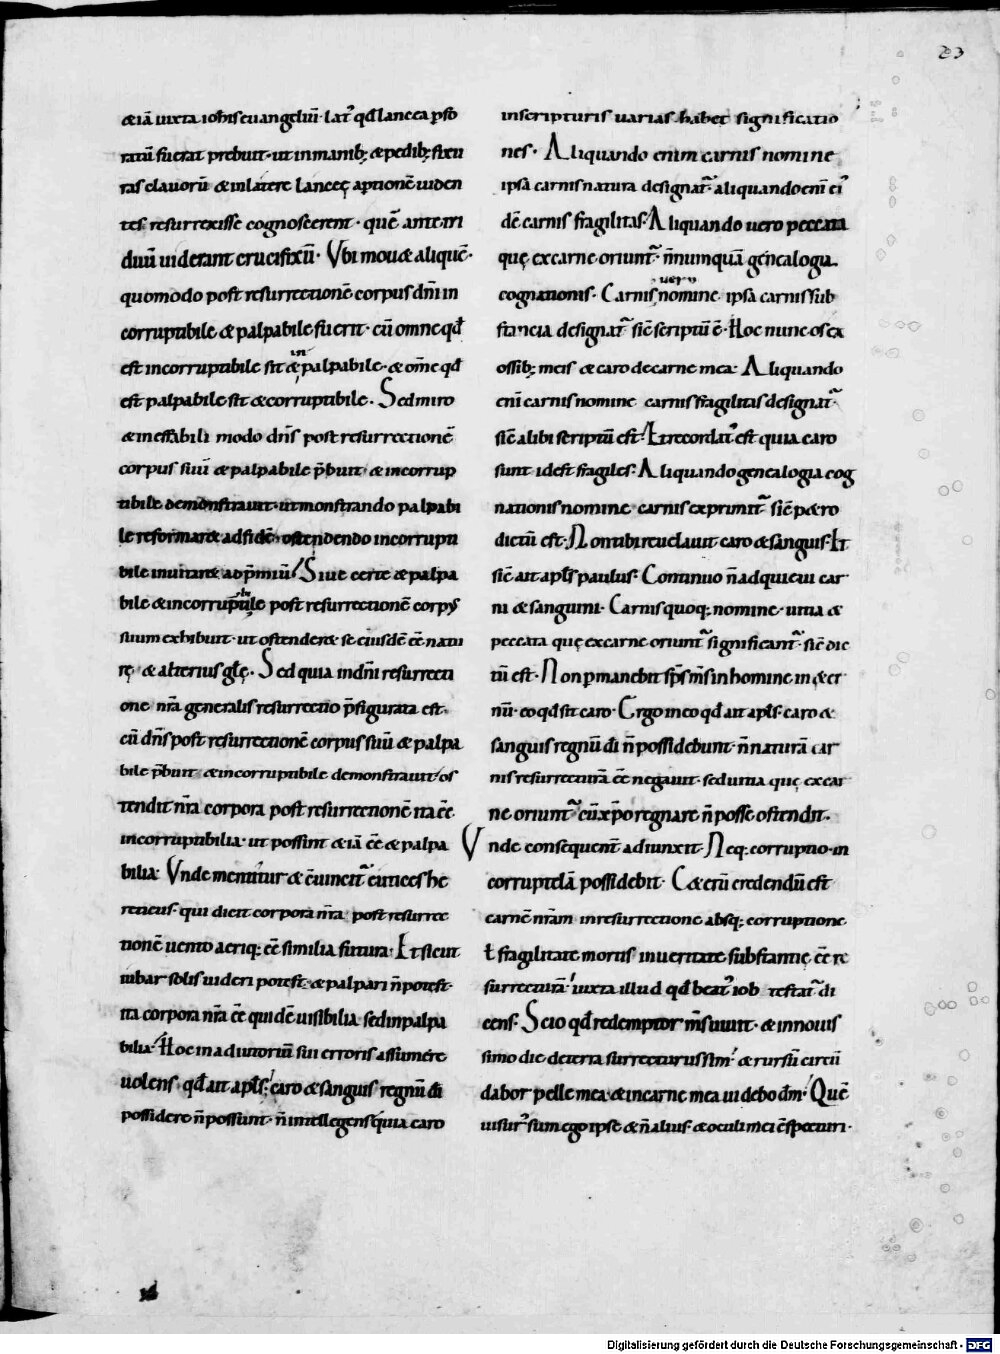 23
&iā iuxta ioħis euangeliū· lat᷒ qđ lancea ꝑfo
ratū fuerat prebuit· ut in manib; & pedib; fixu
ras clauorū & in latere lanceę aptionē uiden
tes resurrexisse cognoscerent· quē ante tri
duū uiderant crucifixū· Vbi mou& aliquē·
quomodo post resurrectionē corpus dn̄i in
corruptibile & palpabile fuerit· cū omne qđ
est incorruptibile sit & inpalpabile· & om̄e qđ
est palpabile sit & corruptibile· Sed miro
& ineffabili modo dn̄s post resurrectionē
corpus suū & palpabile p̄buit· & incorrup
tibile demonstrauit· ut monstrando palpabi
le reformar& ad fidē· ostendendo incorrupti
bile inuitar& ad p̄miū! Siue certe & palpa
bile & incorruptibile post resurrectionē corpus
suum exhibuit· ut ostender& se eiusdē eē natu
rę· & alterius glę̄· Sed quia in dn̄i resurrecti
one nr̄a generalis resurrectio p̄figurata est·
cū dn̄s post resurrectionē corpus suū & palpa
bile p̄buit & incorruptibile demonstrauit/ os
tendit nr̄a corpora post resurrectionē ita eē
incorruptibilia· ut possint &iā eē & palpa
bilia· Vnde mentitur & cōuincit᷒ euticeſ he
reticus· qui dicit corpora nr̄a post resurrec
tionē uento aeriq; eē similia futura· Et sicut
iubar solis uideri potest· & palpari n̄ potest·
ita corpora nr̄a eē quidē uisibilia· sed inpalpa
bilia· Hoc in adiutoriū sui erroris assumere
uolens· qđ ait apłs· caro & sanguis regnū dī
possidere n̄ possunt· n̄ intellegens quia caro
in scripturis uarias habet significatio
nes· Aliquando enim carnis nomine
ipsa carnis natura designat᷒· aliquando enī ei᷒
dē carnis fragilitas· Aliquando uero peccata
quę ex carne oriunt᷒· n̄nunquā genealogia
cognationis· Carnis uero nomine ipsa carnis sub
stancia designat᷒ sic̄ scriptū ē· Hoc nunc os ex
ossib; meis & caro de carne mea· Aliquando
enī carnis nomine carnis fragilitas designat᷒·
sic̄ alibi scriptū est· Et recordat᷒ est quia caro
sunt· id est fragiles· Aliquando genealogia cog
nationis nomine carnis exprimit᷒· sic̄ p&ro
dictū est· Non tibi reuelauit caro & sanguis· Et
sic̄ ait apłs paulus· Continuo n̄ adquieui car
ni & sanguini· Carnis quoq; nomine· uitia &
peccata quę ex carne oriunt᷒ significant᷒· sic̄ dic
tū est· Non ꝑmanebit sp̄s m̄s in homine in &er
nū· eo qđ sit caro· Ergo in eo qđ ait apłs· caro &
sanguis regnū dī n̄ possidebunt· n̄ naturā car
nis resurrecturā eē negauit· sed uitia quę ex car
ne oriunt᷒ cū xp̄o regnare n̄ posse ostendit·
Vnde consequent᷒ adiunxit· Neq; corruptio in
corruptelā possidebit· C&erū credendū est
carnē nr̄am in resurrectione absq; corruptione
ł fragilitate mortis in ueritate substantię eē re
surrecturā/ iuxta illud qđ beat᷒ iob testat᷒ di
cens· Scio qđ redemptor m̄s uiuit· & in nouis
simo die de terra surrecturus sim/ & rursū circū
dabor pelle mea· & in carne mea uidebo dm̄· Quē
uisur᷒ sum ego ipse & n̄ alius· & oculi mei cōspecturi·
Digitalisierung gefördert durch die Deutsche Forschungsgemeinschaft - DFG